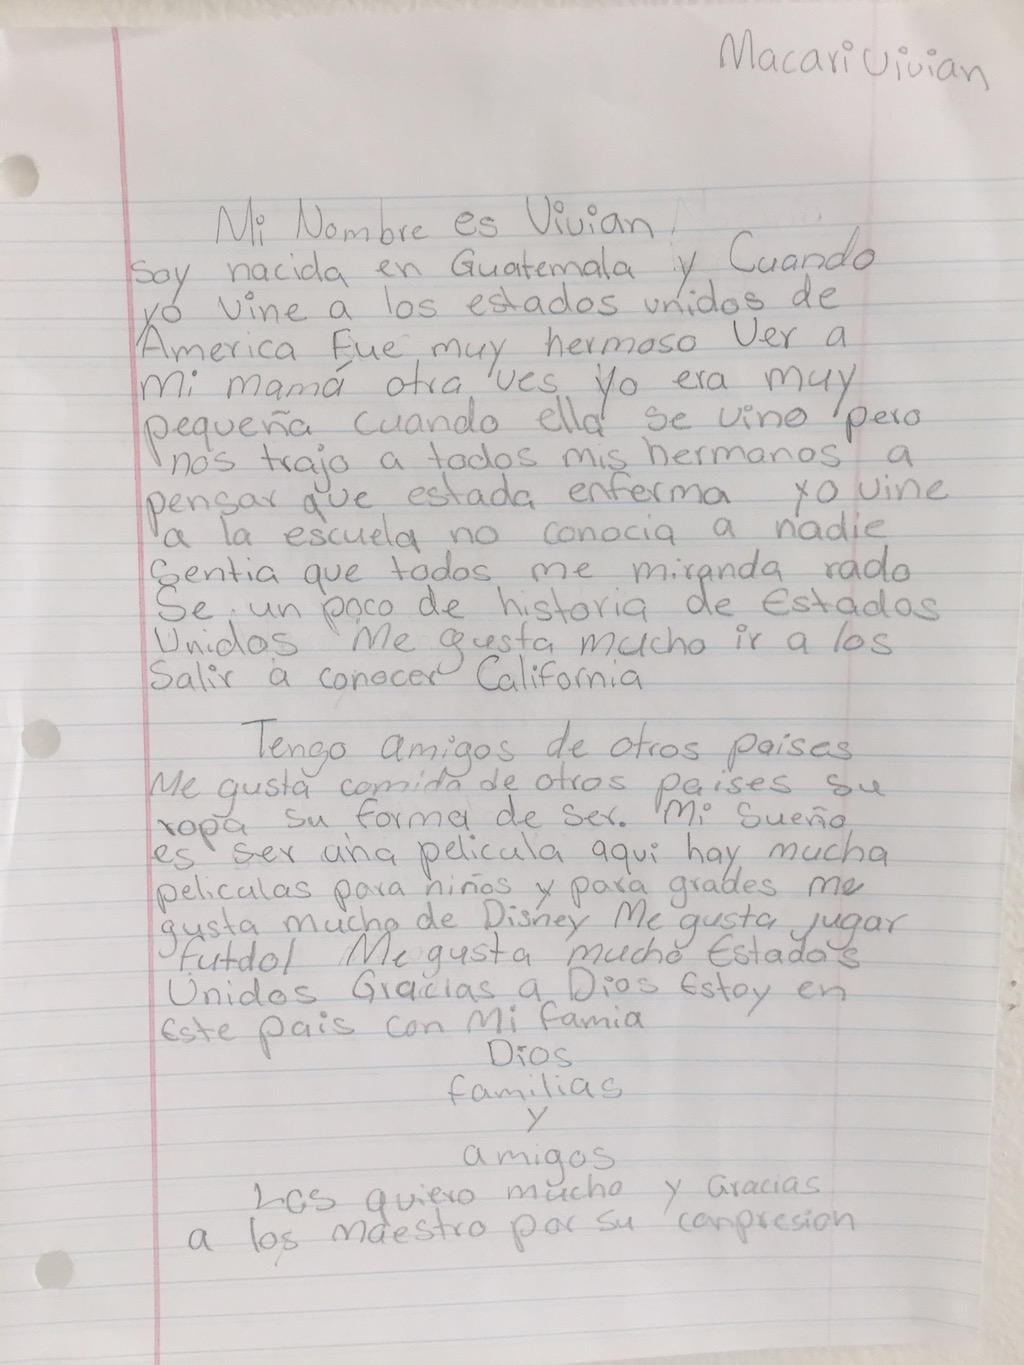 Macari Vivian
Mi Nombre es Vivian
Soy nacida en Guatemala y Cuando
yo vine a los estados unidos de
America Fue muy hermoso Ver a
mi mamá otra ves yo era muy
pequeña cuando ella se vino pero
nos trajo a todos mis hermanos a
pensar que estada enferma yo vine
a la escuela no conocia a nadie
Sentia que todos me miranda rado
Se un poco de historia de Estados
Unidos Me gusta mucho ir a los
Salir a conocer California
Tengo amigos de otros paises
Me gusta comida de otros paises su
ropa su forma de ser. Mi Sueño
es ser una pelicula aqui hay mucha
peliculas para niños y para grades me
gusta mucho de Disney Me gusta jugar
futdol Me gusta mucho Estados
Unidos Gracias a Dios Estoy en
Este pais con Mi famia
Dios
familias
y
amigos
Les quiero mucho y Gracias
a los Maestro por su conpresion